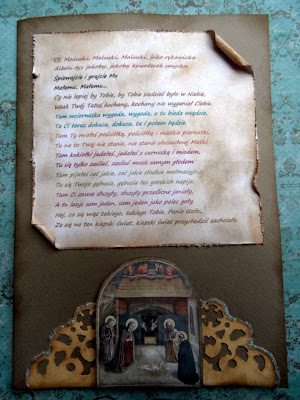 Oj Maluśki, Maluśki, Maluśki, jako rękawicka
Alboli tyz jakoby, jakoby kawałecek smycka.
Śpiewajcie i grajcie Mu
Małemu, Małemu...
Cy nie lepiej by Tobie, by Tobie siedzieć było w Niebie,
Wsak Twój Tatuś kochany, kochany nie wyganiał Ciebie.
Tam wciornaska wygoda, wygoda, a tu bieda wsędzie,
Ta Ci teraz dokuca, dokuca, ta i potem będzie.
Tam Ty miałeś pościółkę, pościółkę i miętkie piernatki,
Tu na to Twej nie stanie, nie stanie ubozuchnej Matki.
Tam kukiołki jadałeś, jadałeś z carnuską i miodem,
Tu się tylko zasilać, zasilać musis samym głodem.
Tam pijałeś ceć jakie, ceć jakie słodkie małmazyje,
Tu się Twoja gębusia, gębusia łez gorzkich napije.
Tam Ci zawse słuzyły, słuzyły prześlicne janioły,
A tu lezys sam jeden, sam jeden jako palec goły.
Hej, co się więc takiego, takiego Tobie, Panie stało,
Ze się na ten kiepski świat, kiepski świat przychodzić zachciało.